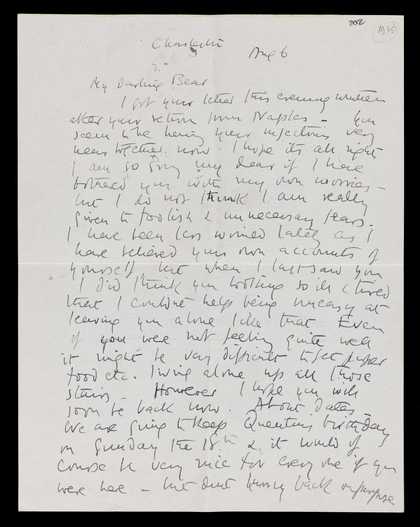 Charleston
Aug 6
My Darling Bear
I got your letter this evening written
after your return from Naples – You
seem to be having your injections very
near together now. I hope its all right
I am so sorry my dear if I have
bothered you with my own worries –
but I do not think I am really
given to foolish & unnecessary fears.
I have been less worried lately as I
have believed your own accounts of
yourself but when I last saw you
I did think you looking so ill & tired
that I couldnt help being uneasy at
leaving you alone like that Even
if you were not feeling quite well
it might be very difficult to get proper
food etc. living alone up all those
stairs – However I hope you will
soon be back now. About dates –
We are going to keep Quentins birthday
on Sunday the 18th & it would of
course be very nice for every one if you
were here – but dont hurry back on purpose